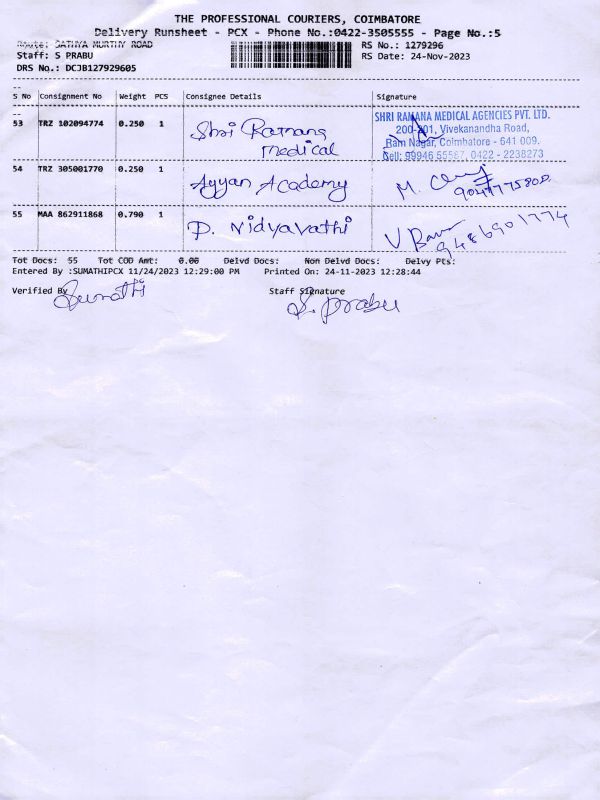 THE PROFESSIONAL COURIERS, COIMBATORE
Delivery Runsheet - PCX - Phone No.:0422-3505555 - Page No.:5
Route: SATHYA MURTHY ROAD
RS No.: 1279296
Staff: S PRABU
RS Date: 24-Nov-2023
DRS No.: DCJB127929605
S No Consignment No Weight PCS Consignee Details Signature
53 TRZ 102094774 0.250 1 Shri Ramana Medical
SHRI RAMANA MEDICAL AGENCIES PVT. LTD.
200-201, Vivekanandha Road,
Ram Nagar, Coimbatore - 641 009.
Cell: 99946 55567, 0422 - 2238273
54 TRZ 305001770 0.250 1 Ayyan Academy
M.
55 MAA 862911868 0.790 1 D. Vidyavathi
V
9486901774
Tot Docs: 55 Tot COD Amt: 0.00 Delvd Docs: Non Delvd Docs: Delvy Pts:
Entered By :SUMATHIPCX 11/24/2023 12:29:00 PM Printed On: 24-11-2023 12:28:44
Verified By Sumathi Staff Signature S. Prabu